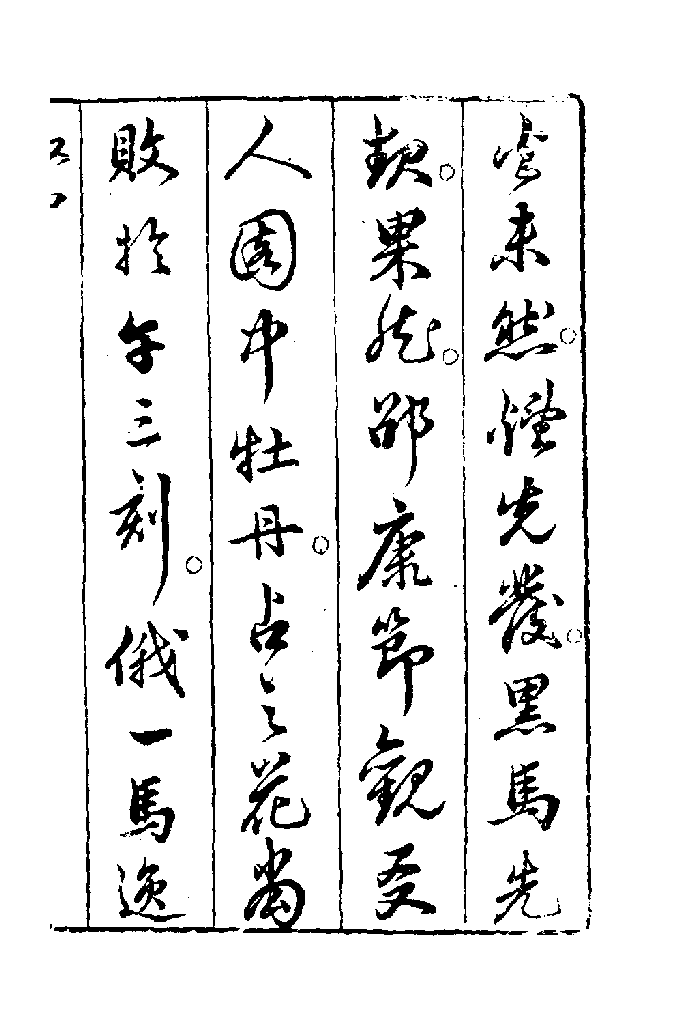 未然。煙先發。黑馬先
果然。邵康節觀友
人園中牡丹。占之花當
敗於午三刻。俄一馬逸